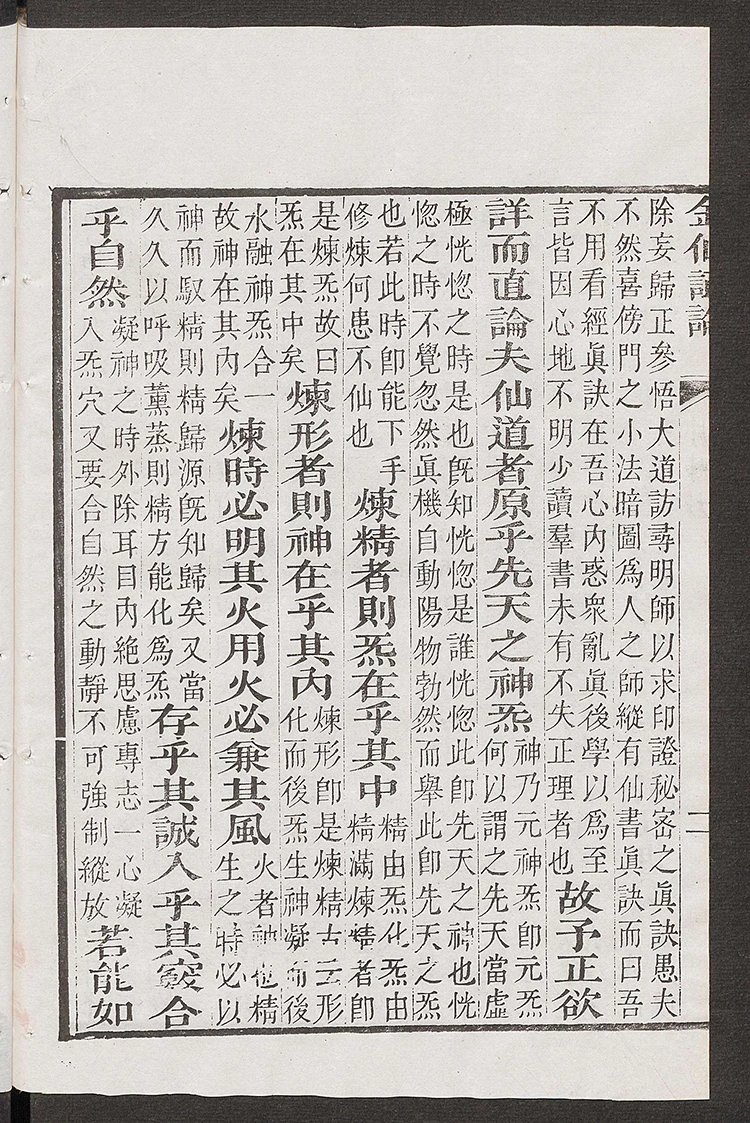 金仙證論
二
除妄歸正參悟大道訪尋明師以求印證秘密之眞訣愚夫
不然喜傍門之小法暗圖爲人之師縱有仙書眞訣而曰吾
不用看經眞訣在吾心内惑衆亂眞後學以爲至
言皆因心地不明少讀羣書未有不失正理者也
故予正欲
詳而直論夫仙道者原乎先天之神炁
神乃元神炁卽元炁
何以謂之先天當虛
極恍惚之時是也旣知恍惚是誰恍惚此卽先天之神也恍
惚之時不覺忽然眞機自動陽物勃然而舉此卽先天之炁
也若此時卽能下手
修煉何患不仙也
煉精者則炁在乎其中
精由炁化炁由
精滿煉精者卽
是煉炁故曰
炁在其中矣
煉形者則神在乎其内
煉形卽是煉精古云形
化而後炁生神凝而後
水融神炁合一
故神在其内矣
煉時必明其火用火必兼其風
火者神也精
生之時必以
神而馭精則精歸源旣知歸矣又當
久久以呼吸薰蒸則精方能化爲炁
存乎其誠入乎其竅合
乎自然
凝神之時外除耳目内絶思慮專志一心凝
入炁穴又要合自然之動靜不可強制縱放
若能如